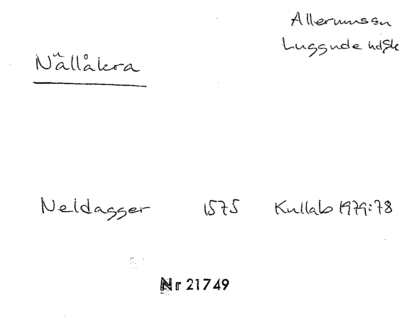 Allerums sn
Luggude hd Sk
Nällåkra
Neldagger 1575 Kullab 1979:78
Nr 21749